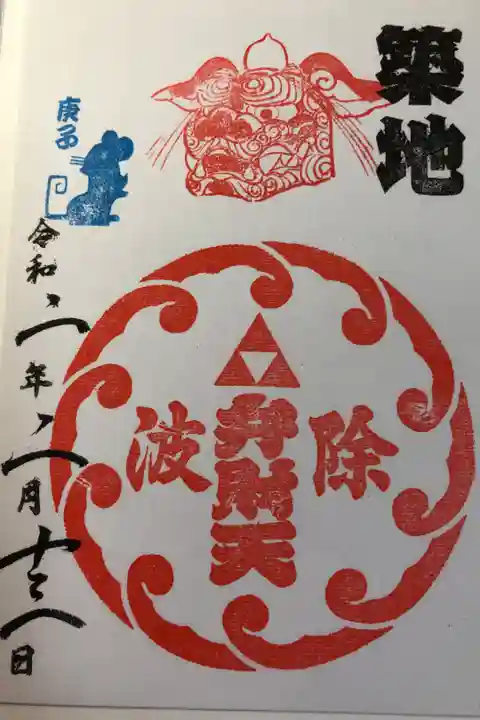 築地
除
弁財天
波
庚子
令和二年二月十二日